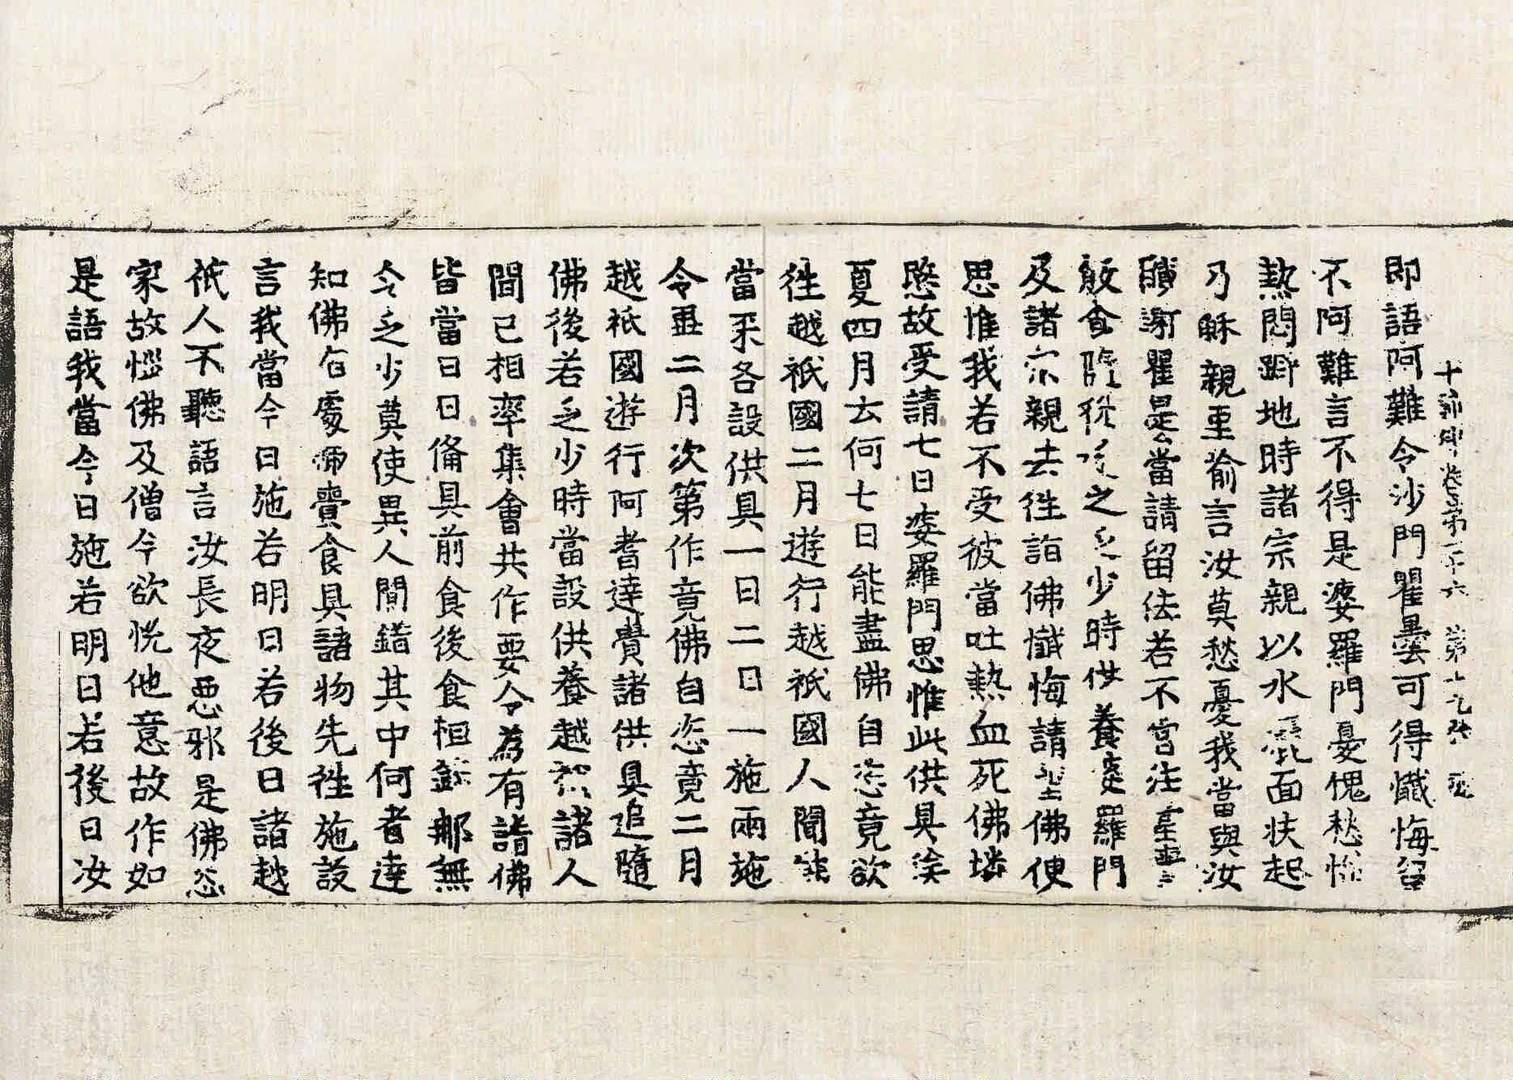 十誦律卷第二十六 第十九張
即語阿難今沙門瞿曇可得懺悔留
不阿難言不得是婆羅門憂愧愁惱
熱悶躃地時諸宗親以水灑面扶起
乃穌親里喻言汝莫愁憂我當與汝
懺謝瞿曇當請留住若不當住
飯食隨從後之乏少時供養婆羅門
及諸宗親去往詣佛懺悔請佛便
思惟我若不受彼當吐熱血死佛憐
愍故受請七日婆羅門思惟此供具
夏四月云何七日能盡佛自恣竟欲
往越祇國二月遊行越祇國人聞
當來各設供具一日二日一施兩施
令二月次第作竟佛自恣竟二月
越祇國遊行阿耆達賷諸供具追隨
佛後若乏少時當設供養越祇諸人
聞已相率集會共作要令為有諸佛
皆當日日俻具前食後食怛鉢那無
令乏少莫使異人間錯其中阿耆達
知佛有處齎食具諸物先往施設
言我當今日施若明日若後日諸越
祇人不聽語言汝長夜惡邪是佛怨
家故惱佛及僧今欲悅他意故作如
是語我當今日施若明日若後日汝